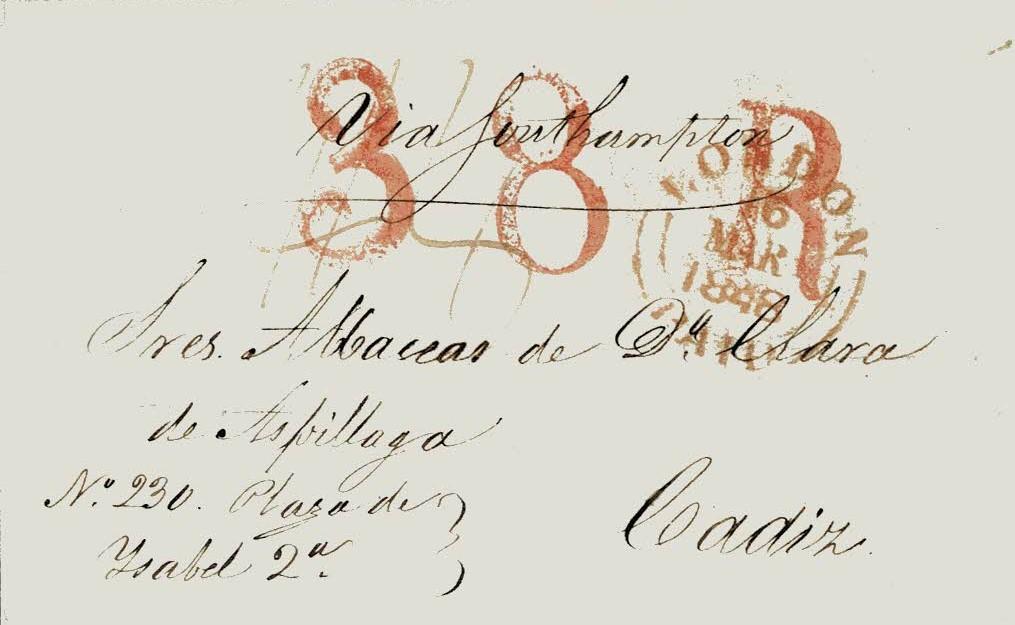 Via Southampton
38R
LONDON
16
MAR
1848
PAID
Sres. Albaceas de Dª. Clara
de Aspillaga
Nº. 230. Plaza de
Ysabel 2ª.
Cadiz.